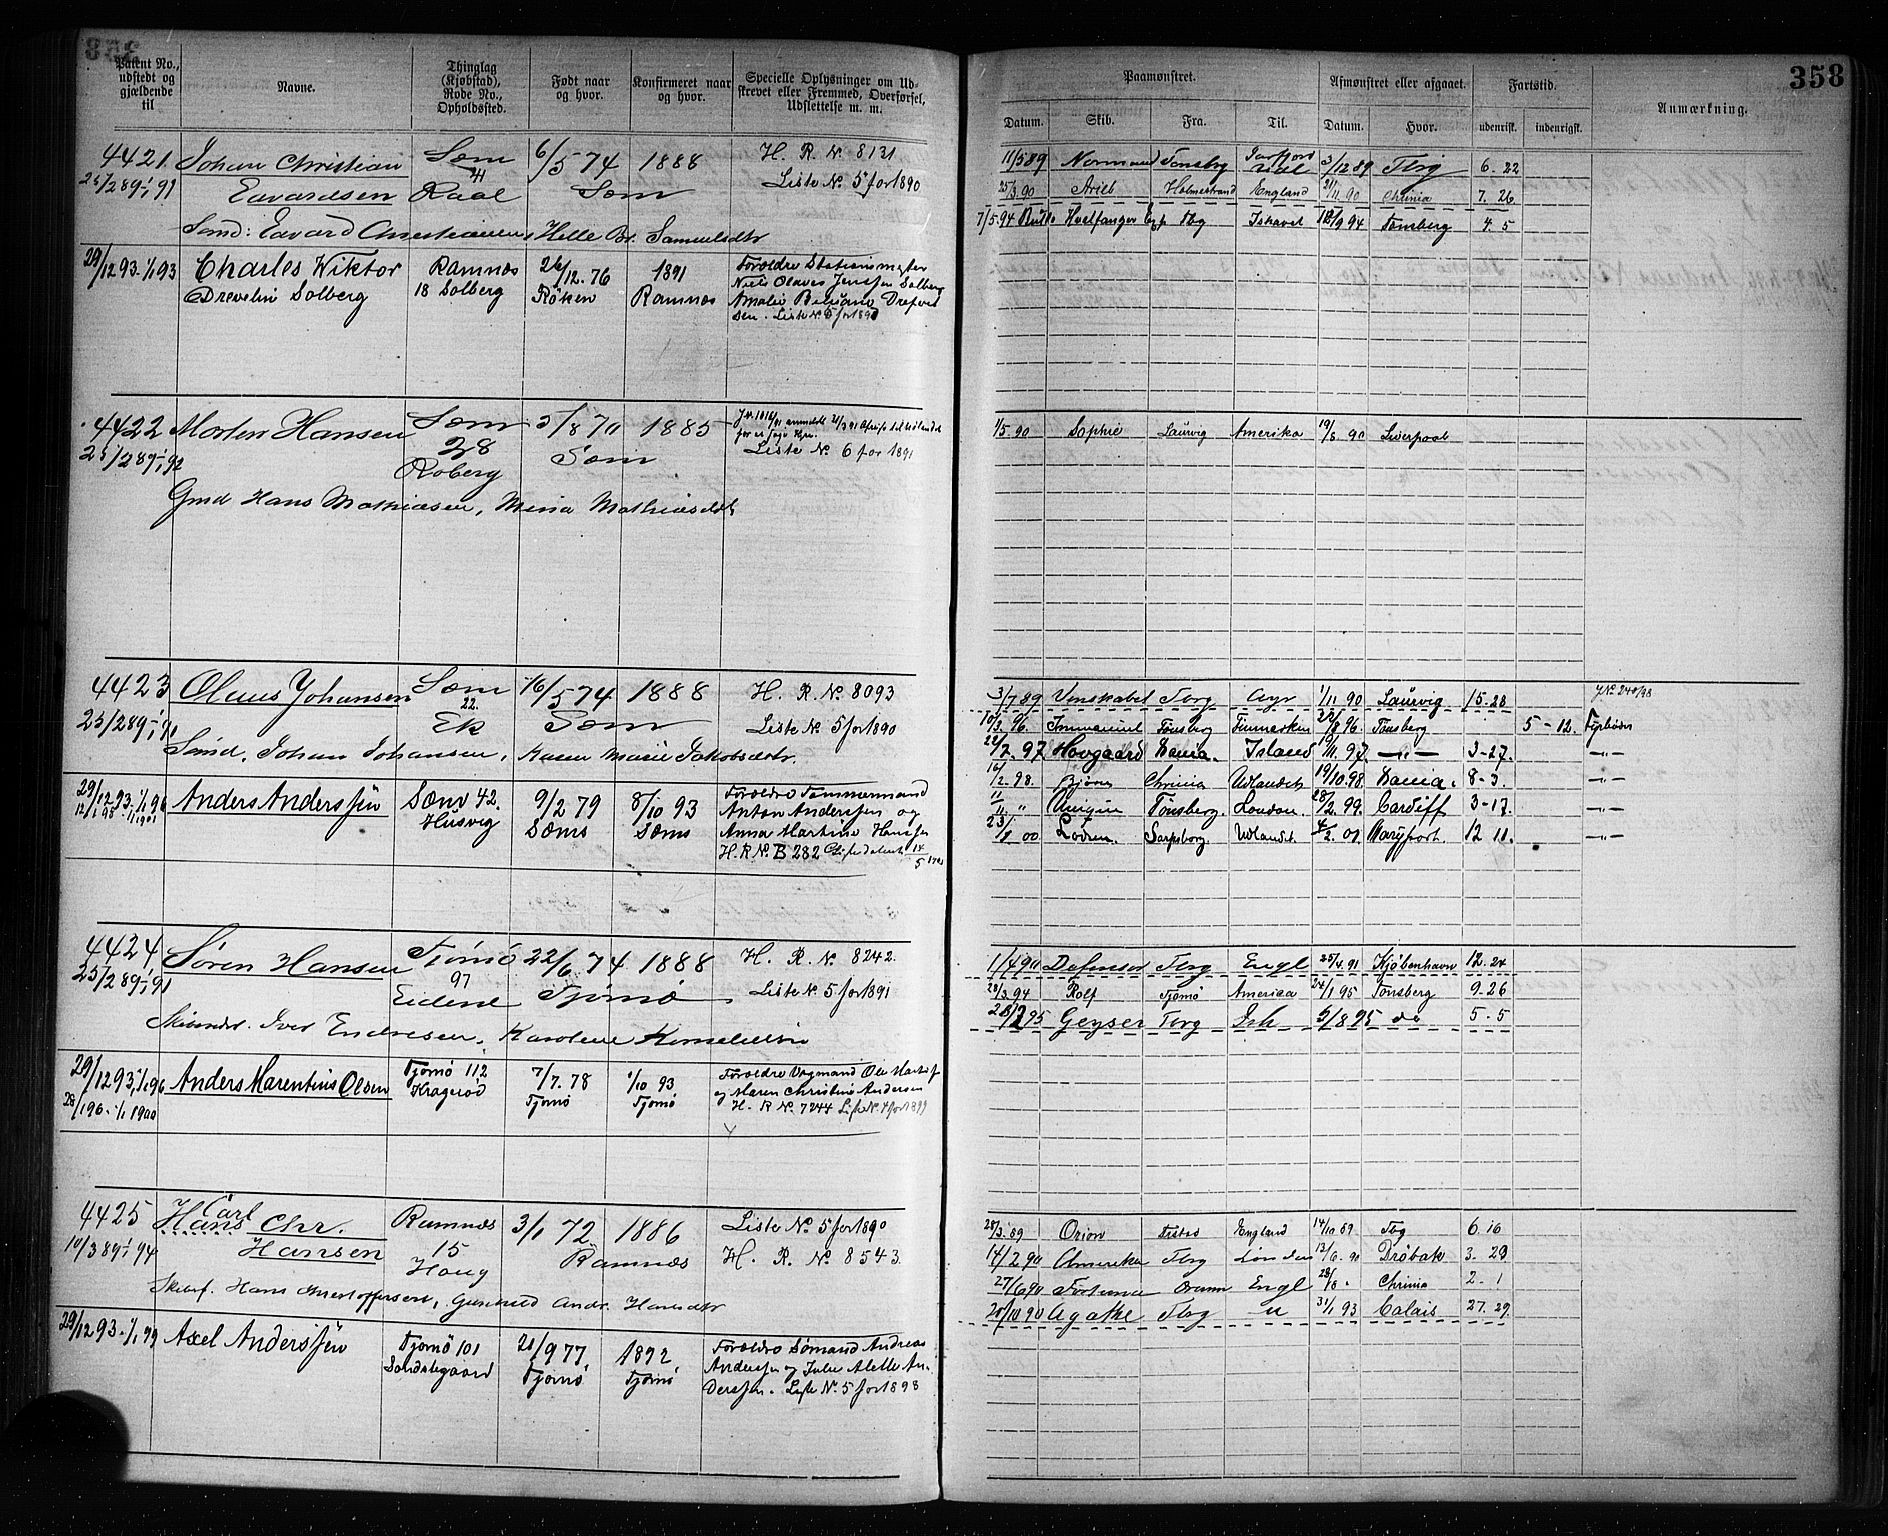 358
Patent No., udstedt og gjældende til
Navne.
Thinglag (Kjøbstad), Rode No., Opholdssted.
Født naar og hvor.
Konfirmeret naar og hvor.
Specielle Oplysninger om Udskrevet eller Fremmed, Overførsel, Udslettelse m. m.
4421 Johan Christian Sæm 6/5 74 1888 H. R. No 8131
25/2 89-1/1 91 Edvardsen 41 Raal Sæm Liste No 5 for 1890
Smd: Edvard Christiansen, Helle Br. Samuelsdtr
29/12 93.1/1 93 Charles Wiktor Ramnæs 26/12.76 1891 Forældre Stationsmester
Drevelin Solberg 18 Solberg Røken Ramnæs Niels Olaves Jenssen Solberg
Amalie Drefvel
sen. Liste No 5 for 1890
4422 Morten Hansen Sæm 5/8 70 1885
25/2 89-1/1 92 28 Roberg Sæm Liste No 6 for 1891
Gmd Hans Mathiasen, Mina Mathiasdtr
4423 Olaus Johansen Sæm 16/5 74 1888 H. R. No 8093
25/2 89-1/1 91 22. Ek Sæm Liste No 5 for 1890
Smd, Johan Johansen, Karen Marie Jakobsdtr.
29/12 93.1/1 96 Anders Anderssen Sæm 42. 9/2 79 8/10 93 Forældre Tømmermand
Husvig Sæms Sæms Anton Anderssen og
Anna Martine Hanssen
H. R No. B 282
4424 Søren Hansen Tjømø 22/6 74 1888 H. R. No 8242.
25/2 89-1/1 91 97 Eidene Tjømø Liste No 5 for 1891
Iver Endresen, Karoline Kornelius
29/12 93.1/1 96 Anders Marentius Olsen Tjømø 112 7/7. 78 1/10 93 Forældre
28/1 96.-1/1 1900 Kragerød Tjømø Tjømø og Maren Christine Andersen
H. R No. 7244 Liste No. 4 for 1899
4425 Carl Hans Chr. Ramnæs 3/1 72 1886 Liste No 5 for 1890
10/3 89-1/1 94 Hansen 15 Haug Ramnæs H. R. No 8543.
Hans Kristoffersen, Gunhild Andr. Hansdtr
29/12 93.-1/1 99 Axel Anderssen Tjømø 101 21/9 77. 1892, Forældre Sømand Andreas
Sandstegaard Tjømø Tjømø Anderssen og Julie Alette An-
derssen. Liste No. 5 for 1898
Paamønstret.
Afmønstret eller afgaaet.
Fartstid.
Anmærkning.
Datum. Skib. Fra. Til. Datum. Hvor. udenrigsk. indenrigsk.
11/5 89 Normand Tønsbg 3/12 89 Tbrg 6. 22
25/3 90 Ariel Holmestrand England 21/11 90 Chrinia 7. 26
7/5.94 Hvalfanger Tbg Ishavet 18/9 94 Tønsberg 4. 5
1/5 90 Sophie Laurvig Amerika 19/8 90 Liverpool
3/7 89 Venskabet Tbrg Ayr 1/11 90 Laurvig 15-28 JNo 240/98
10/3 96. Immanuel Tønsberg Finmarken 22/8 96. Tønsberg 5-12. Fyrbøder
2.97 Hovgaard Dania. Island 11.97 -"- 3-27. -"-
16/2 98. Bjørn Chrinia Udlandet 19/10.98. Dania. 8-3. -"-
11/11 " Tønsberg. London. 28/2 99. Cardiff 3-17. -"-
23/8 00 Sarpsborg Udlandet. 4/2. 01. Maryport. 12 11. -"-
1/4 90 Defensor Tbrg Engl 25/4.91 Kjøbenhavn 12.24
28/3.94 Rolf Tjømø America 24/1 95 Tønsberg 9-26
28/2 95 Geyser Tbrg Ish 5/8 95 do 5-5
28/3.89 Orion England 14/10 89 Tbg 6.16
14/2 90 Amerika Tbrg London 12/6.90 Drøbak 3. 29
27/6 90 Fortuna Engl 28/8 " Chrinia 2-1
20/10 90 Agathe Tbrg u 31/1 93 Calais 27.29.